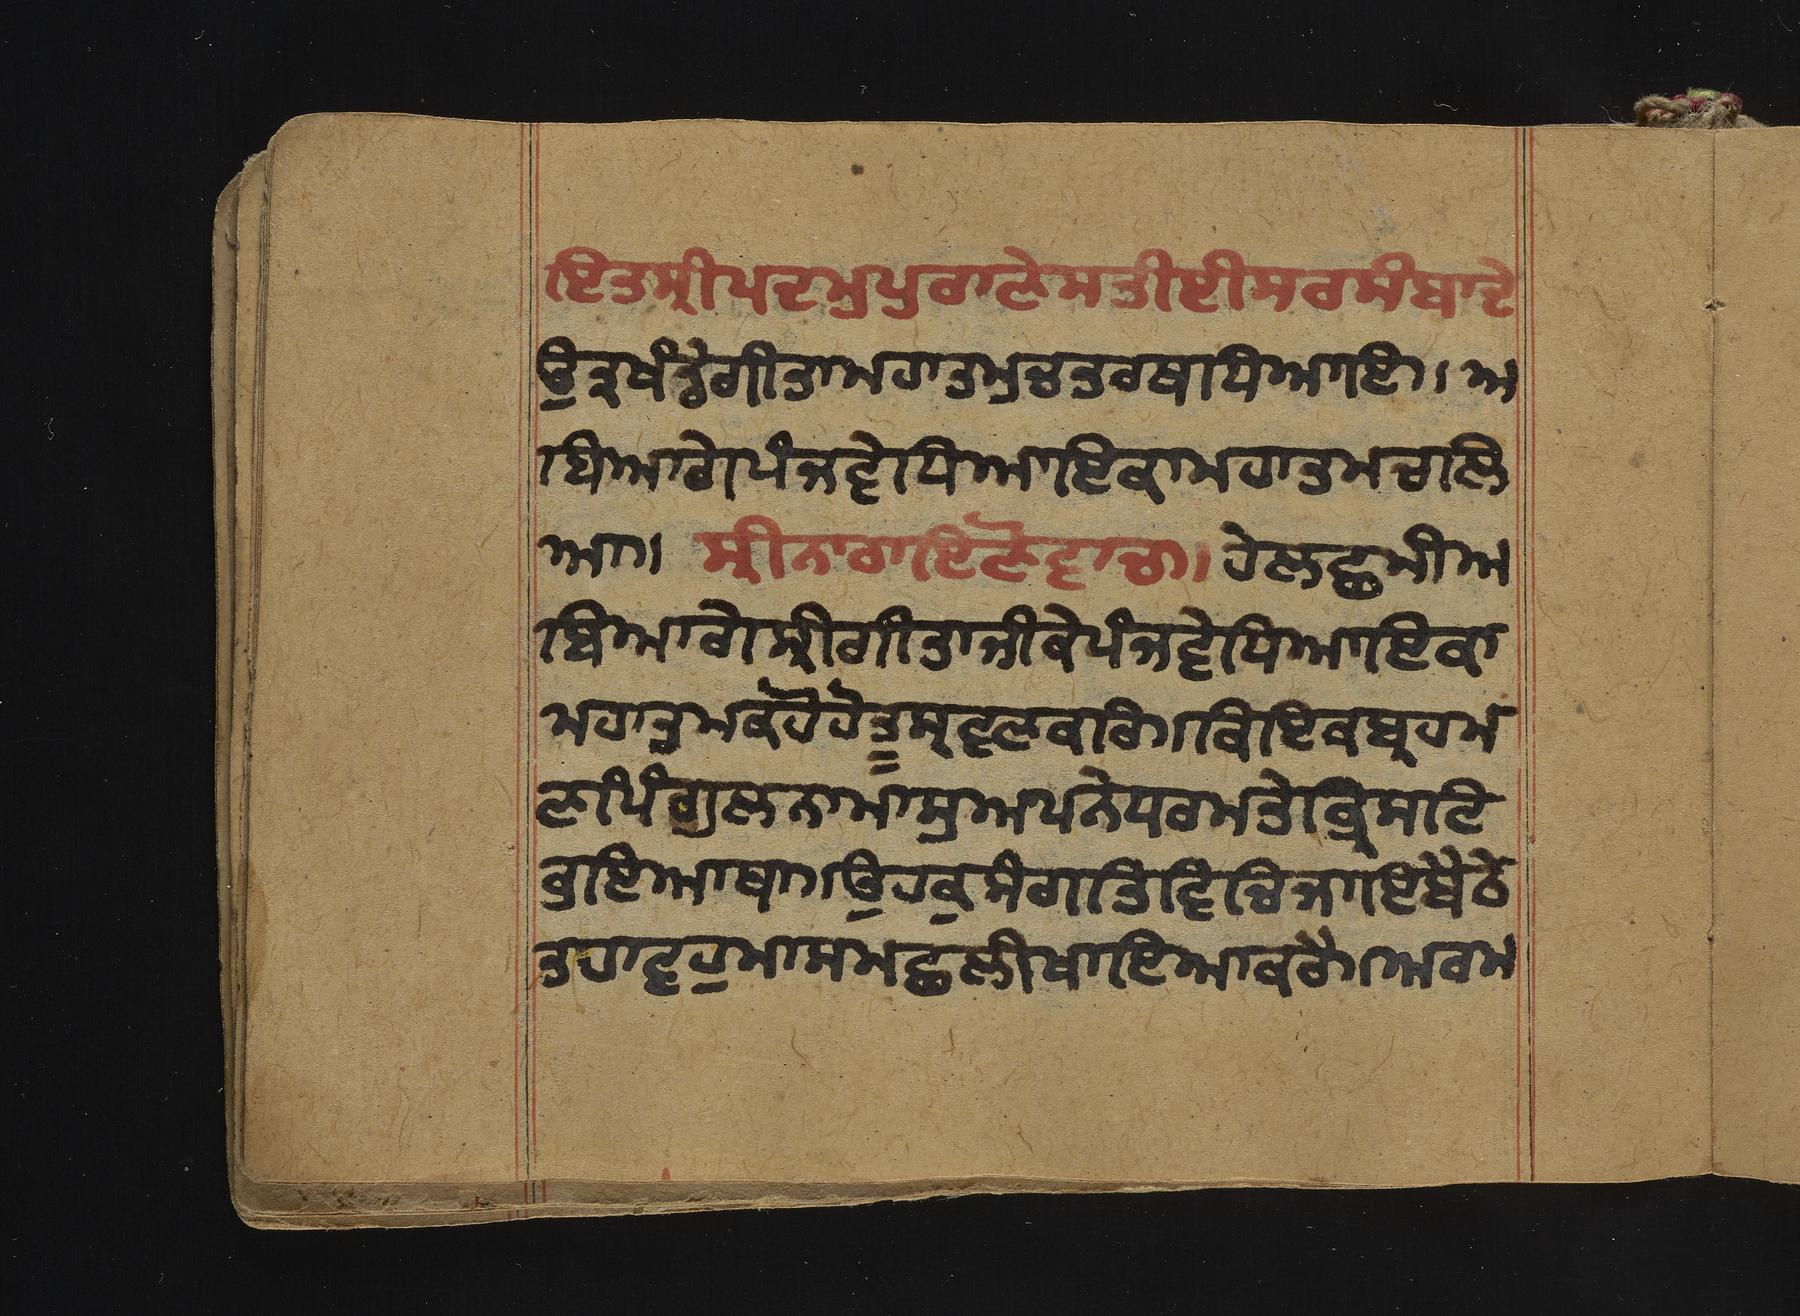 ਇਤਸ੍ਰੀਪਦਮੁਪੁਰਾਣੇਸਤੀਈਸਰਸੰਬਾਦੇ
ਉਤ੍ਰਖੰਡੇਗੀਤਾਮਹਾਤਮੁਚਤਰਥਾਧਿਆਇ।੧। ਅ
ਬਿਆਗੇਪੰਜਵੇਧਿਆਇਕਾਮਹਾਤਮਚਲਿ
ਆ।੧। ਸ੍ਰੀਨਾਰਾਇਣੋਵਾਚ।੧। ਹੇਲਛਮੀਅ
ਬਿਆਗੇਸ੍ਰੀਗੀਤਾਜੀਕੇਪੰਜਵੇਧਿਆਇਕਾ
ਮਹਾਤੁਮਕਹੋਹੋਤੂਸ੍ਰਵਣਕਰਿ।ਕਿਇਕਬ੍ਰਹਮ
ਣਪਿੰਗੁਲਨਾਮਾਸੁਅਪਨੇਧਰਮਤੇਭ੍ਰਿਸਟਿ
ਹੁਇਆਥਾ।ਉਹਕੁਸੰਗਤਿਵਿਚਿਜਾਇਬੈਠੇ
ਤਹਾਵਹੁਮਾਸਮਛਲੀਖਾਇਆਕਰੈ।ਅਰਮ